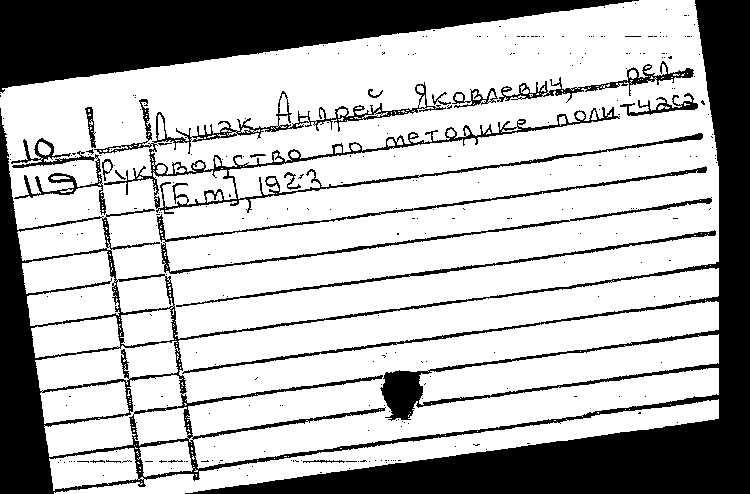 Душак, Андрей Яковлевич, ред.
10
119
Руководство по методике политчаса.
[Б.м.], 1923.